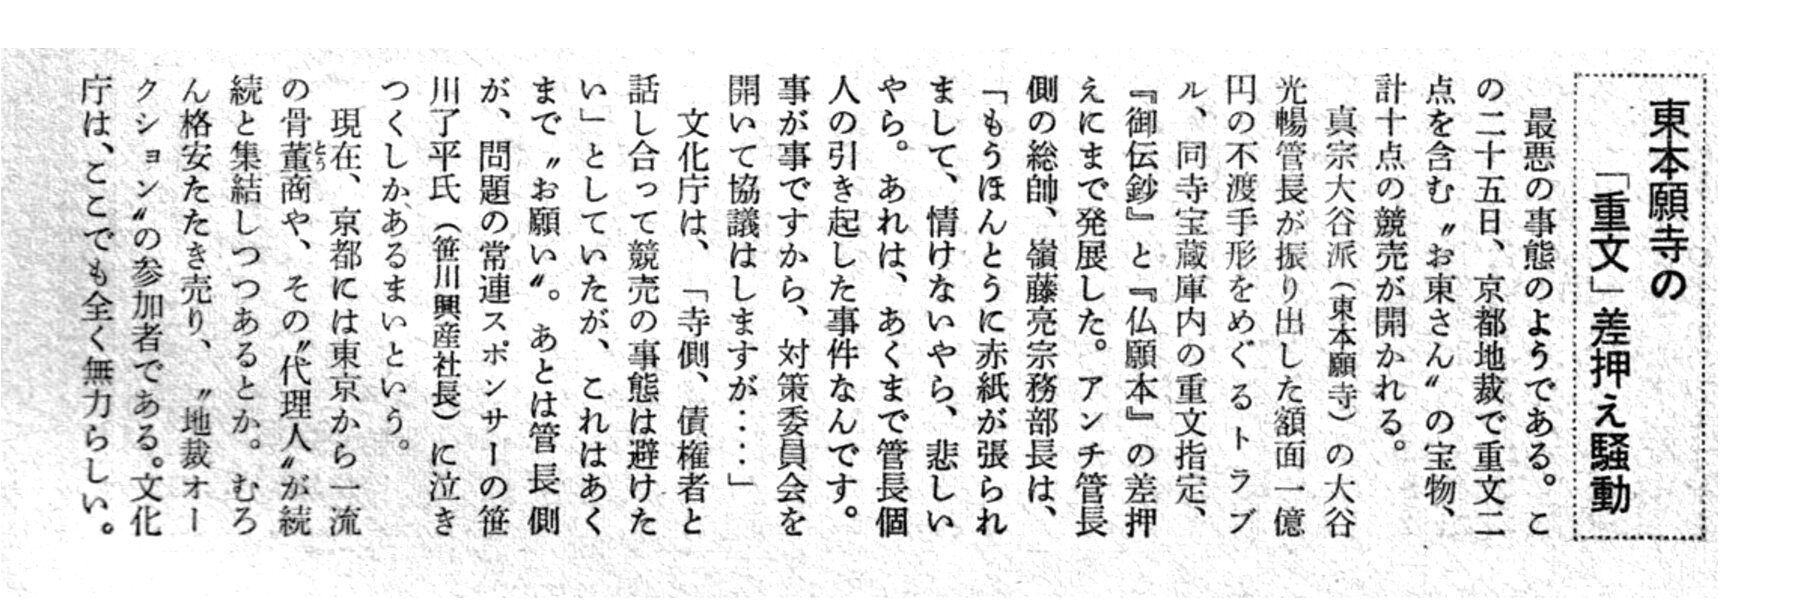 東本願寺の
「重文」差押え騒動
最悪の事態のようである。こ
の二十五日、京都地裁で重文二
点を含む〝お東さん〟の宝物、
計十点の競売が開かれる。
真宗大谷派（東本願寺）の大谷
光暢管長が振り出した額面一億
円の不渡手形をめぐるトラブ
ル、同寺宝蔵庫内の重文指定、
『御伝鈔』と『仏願本』の差押
えにまで発展した。アンチ管長
側の総帥、嶺藤亮宗務部長は、
「もうほんとうに赤紙が張られ
まして、情けないやら、悲しい
やら。あれは、あくまで管長個
人の引き起した事件なんです。
事が事ですから、対策委員会を
開いて協議はしますが‥‥」
文化庁は、「寺側、債権者と
話し合って競売の事態は避けた
い」としていたが、これはあく
まで〝お願い〟。あとは管長側
が、問題の常連スポンサーの笹
川了平氏（笹川興産社長）に泣き
つくしか、あるまいという。
現在、京都には東京から一流
の骨董商や、その〝代理人〟が続
とう
続と集結しつつあるとか。むろ
ん格安たたき売り、〝地裁オー
クション〟の参加者である。文化
庁は、ここでも全く無力らしい。